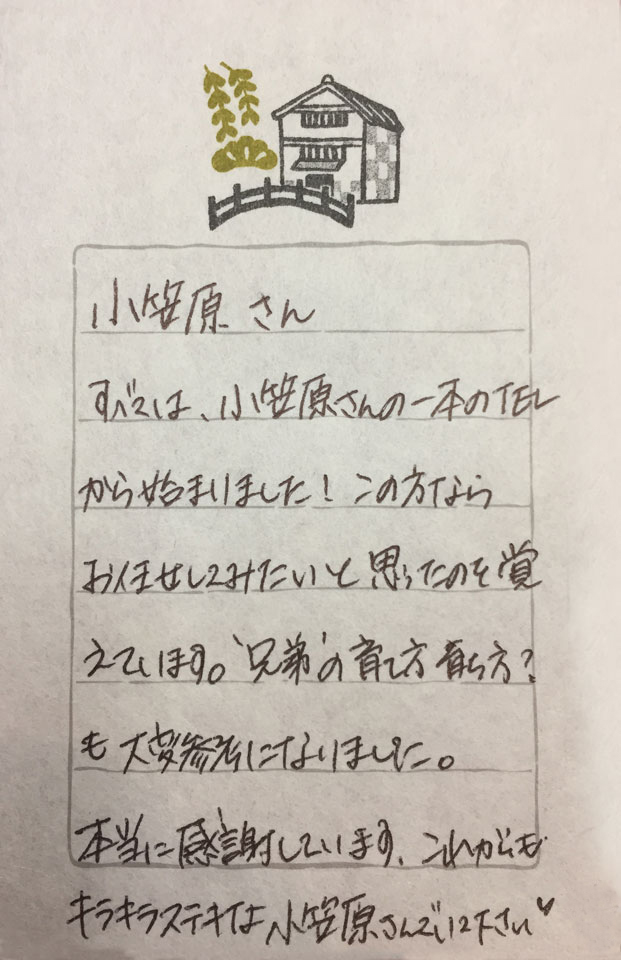 小笠原 さん
すべては、小笠原さんの一本のTEL
から始まりました！この方なら
お任せしてみたいと思ったのを覚
えています。"兄弟"の育て方育ち方？
も大変参考になりました。
本当に感謝しています、これからも
キラキラステキな小笠原さんでいて下さい♥